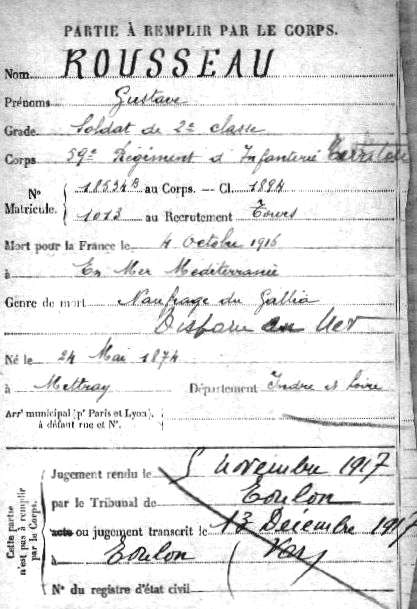 PARTIE À REMPLIR PAR LE CORPS.
Nom ROUSSEAU
Prénoms Gustave
Grade Soldat de 2e classe
Corps 59e Régiment d'Infanterie
N° Matricule. 18534B au Corps. — Cl. 1894
1013 au Recrutement Tours
Mort pour la France le 4 octobre 1916
à En Mer Méditerranée
Genre de mort Naufrage du Gallia
Disparu en Mer
Né le 24 Mai 1874
à Mettray Département Indre et Loire
Arrt municipal (pr Paris et Lyon),
à défaut rue et N°.
Cette partie n'est pas à remplir par le Corps.
Jugement rendu le 5 novembre 1917
par le Tribunal de Toulon
acte ou jugement transcrit le 13 Décembre 1917
à Toulon (Var)
N° du registre d'état civil